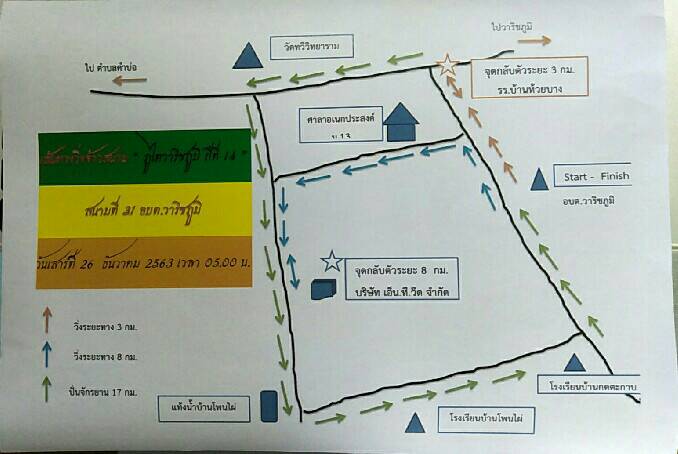 ไปวาริชภูมิ
วัดทวีวิทยาราม
ไป ตำบลคำบ่อ
จุดกลับตัวระยะ 3 กม.
รร.บ้านห้วยบาง
ศาลาอเนกประสงค์
ม.13
เส้นทางวิ่งข้ามสะพาน " ภูไทวาริชภูมิ ปีที่ 14 "
สนามที่ 21 อบต.วาริชภูมิ
วันเสาร์ที่ 26 ธันวาคม 2563 เวลา 05.00 น.
Start - Finish
อบต.วาริชภูมิ
จุดกลับตัวระยะ 8 กม.
บริษัท เอ็น.ที.วีด จำกัด
วิ่งระยะทาง 3 กม.
วิ่งระยะทาง 8 กม.
ปั่นจักรยาน 17 กม.
แท้งน้ำบ้านโพนไผ่
โรงเรียนบ้านโพนไผ่
โรงเรียนบ้านกุดตะกาบ